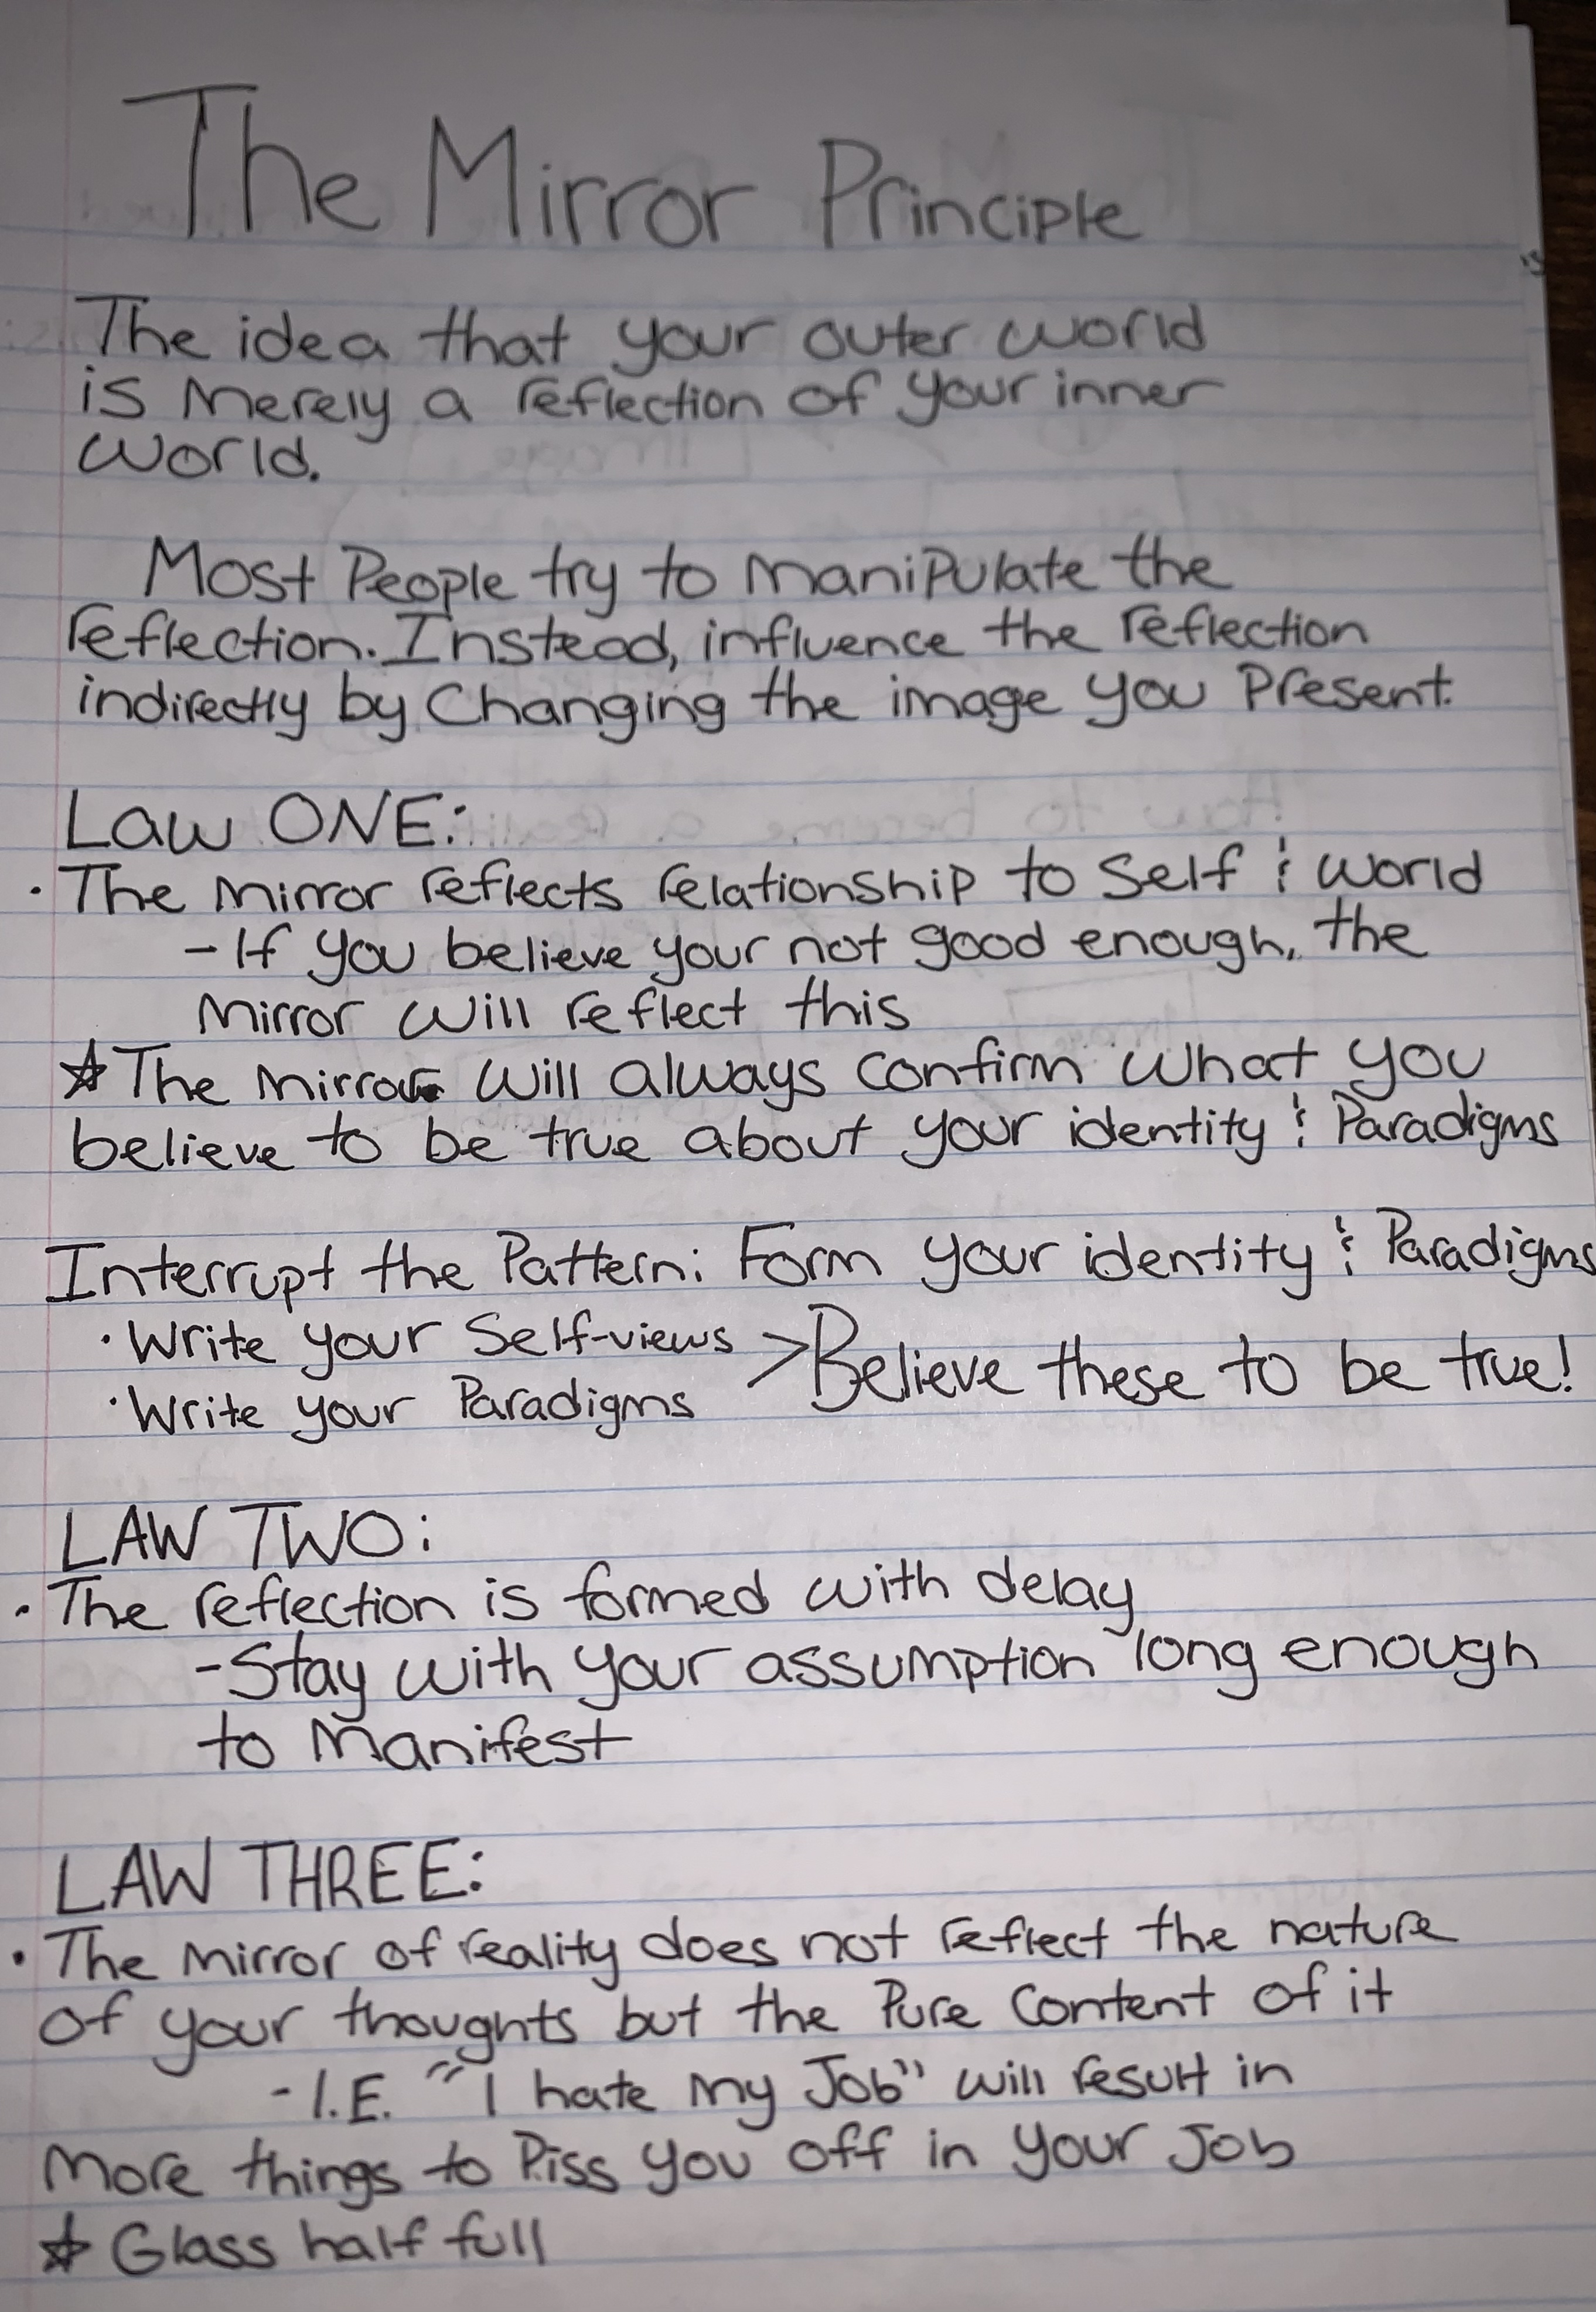 The Mirror Principle
The idea that your outer world
is merely a reflection of your inner
world.
Most People try to manipulate the
reflection. Instead, influence the reflection
indirectly by Changing the image you Present.
Law ONE:
· The mirror reflects relationship to Self & world
- If you believe your not good enough, the
mirror will reflect this
☆ The mirror will always confirm what you
believe to be true about your identity & Paradigms
Interrupt the Pattern: Form your identity & Paradigms
· Write your Self-views > Believe these to be true!
· Write your Paradigms
LAW TWO:
· The reflection is formed with delay
- Stay with your assumption long enough
to Manifest
LAW THREE:
· The mirror of reality does not reflect the nature
of your thoughts but the Pure Content of it
- I.E. "I hate my Job" will result in
more things to Piss you off in your Job
☆ Glass half full